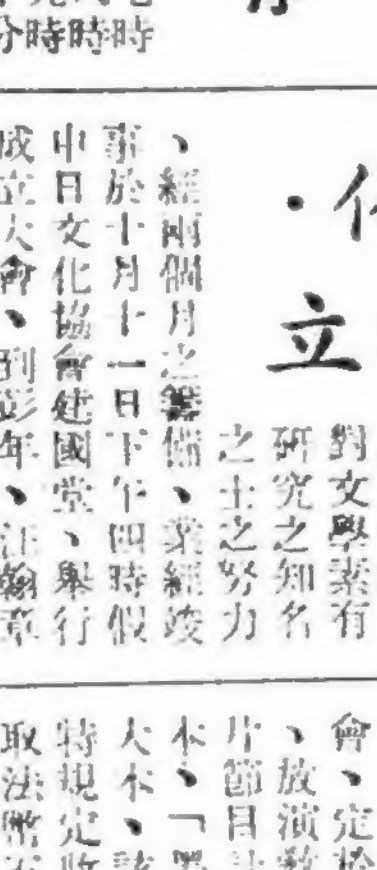 時時時分
立
對文學素有
研究之知名
之士之努力
、經兩個月之籌備、業經竣
事於十月十一日下午四時假
中日文化協會建國堂、舉行
成立大會、到彭年、汪翰章
會、定於
、放演
片節目
木、「
大木、該
特規定收
取法幣